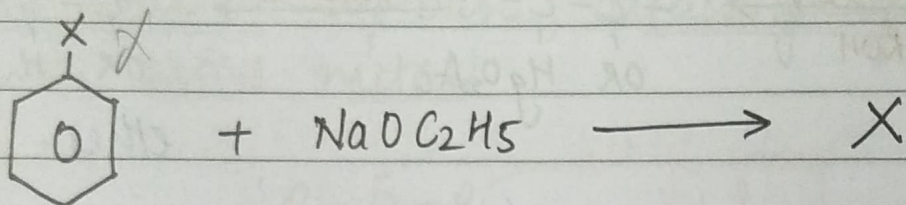 X
O + NaOC2H5 ⟶ X